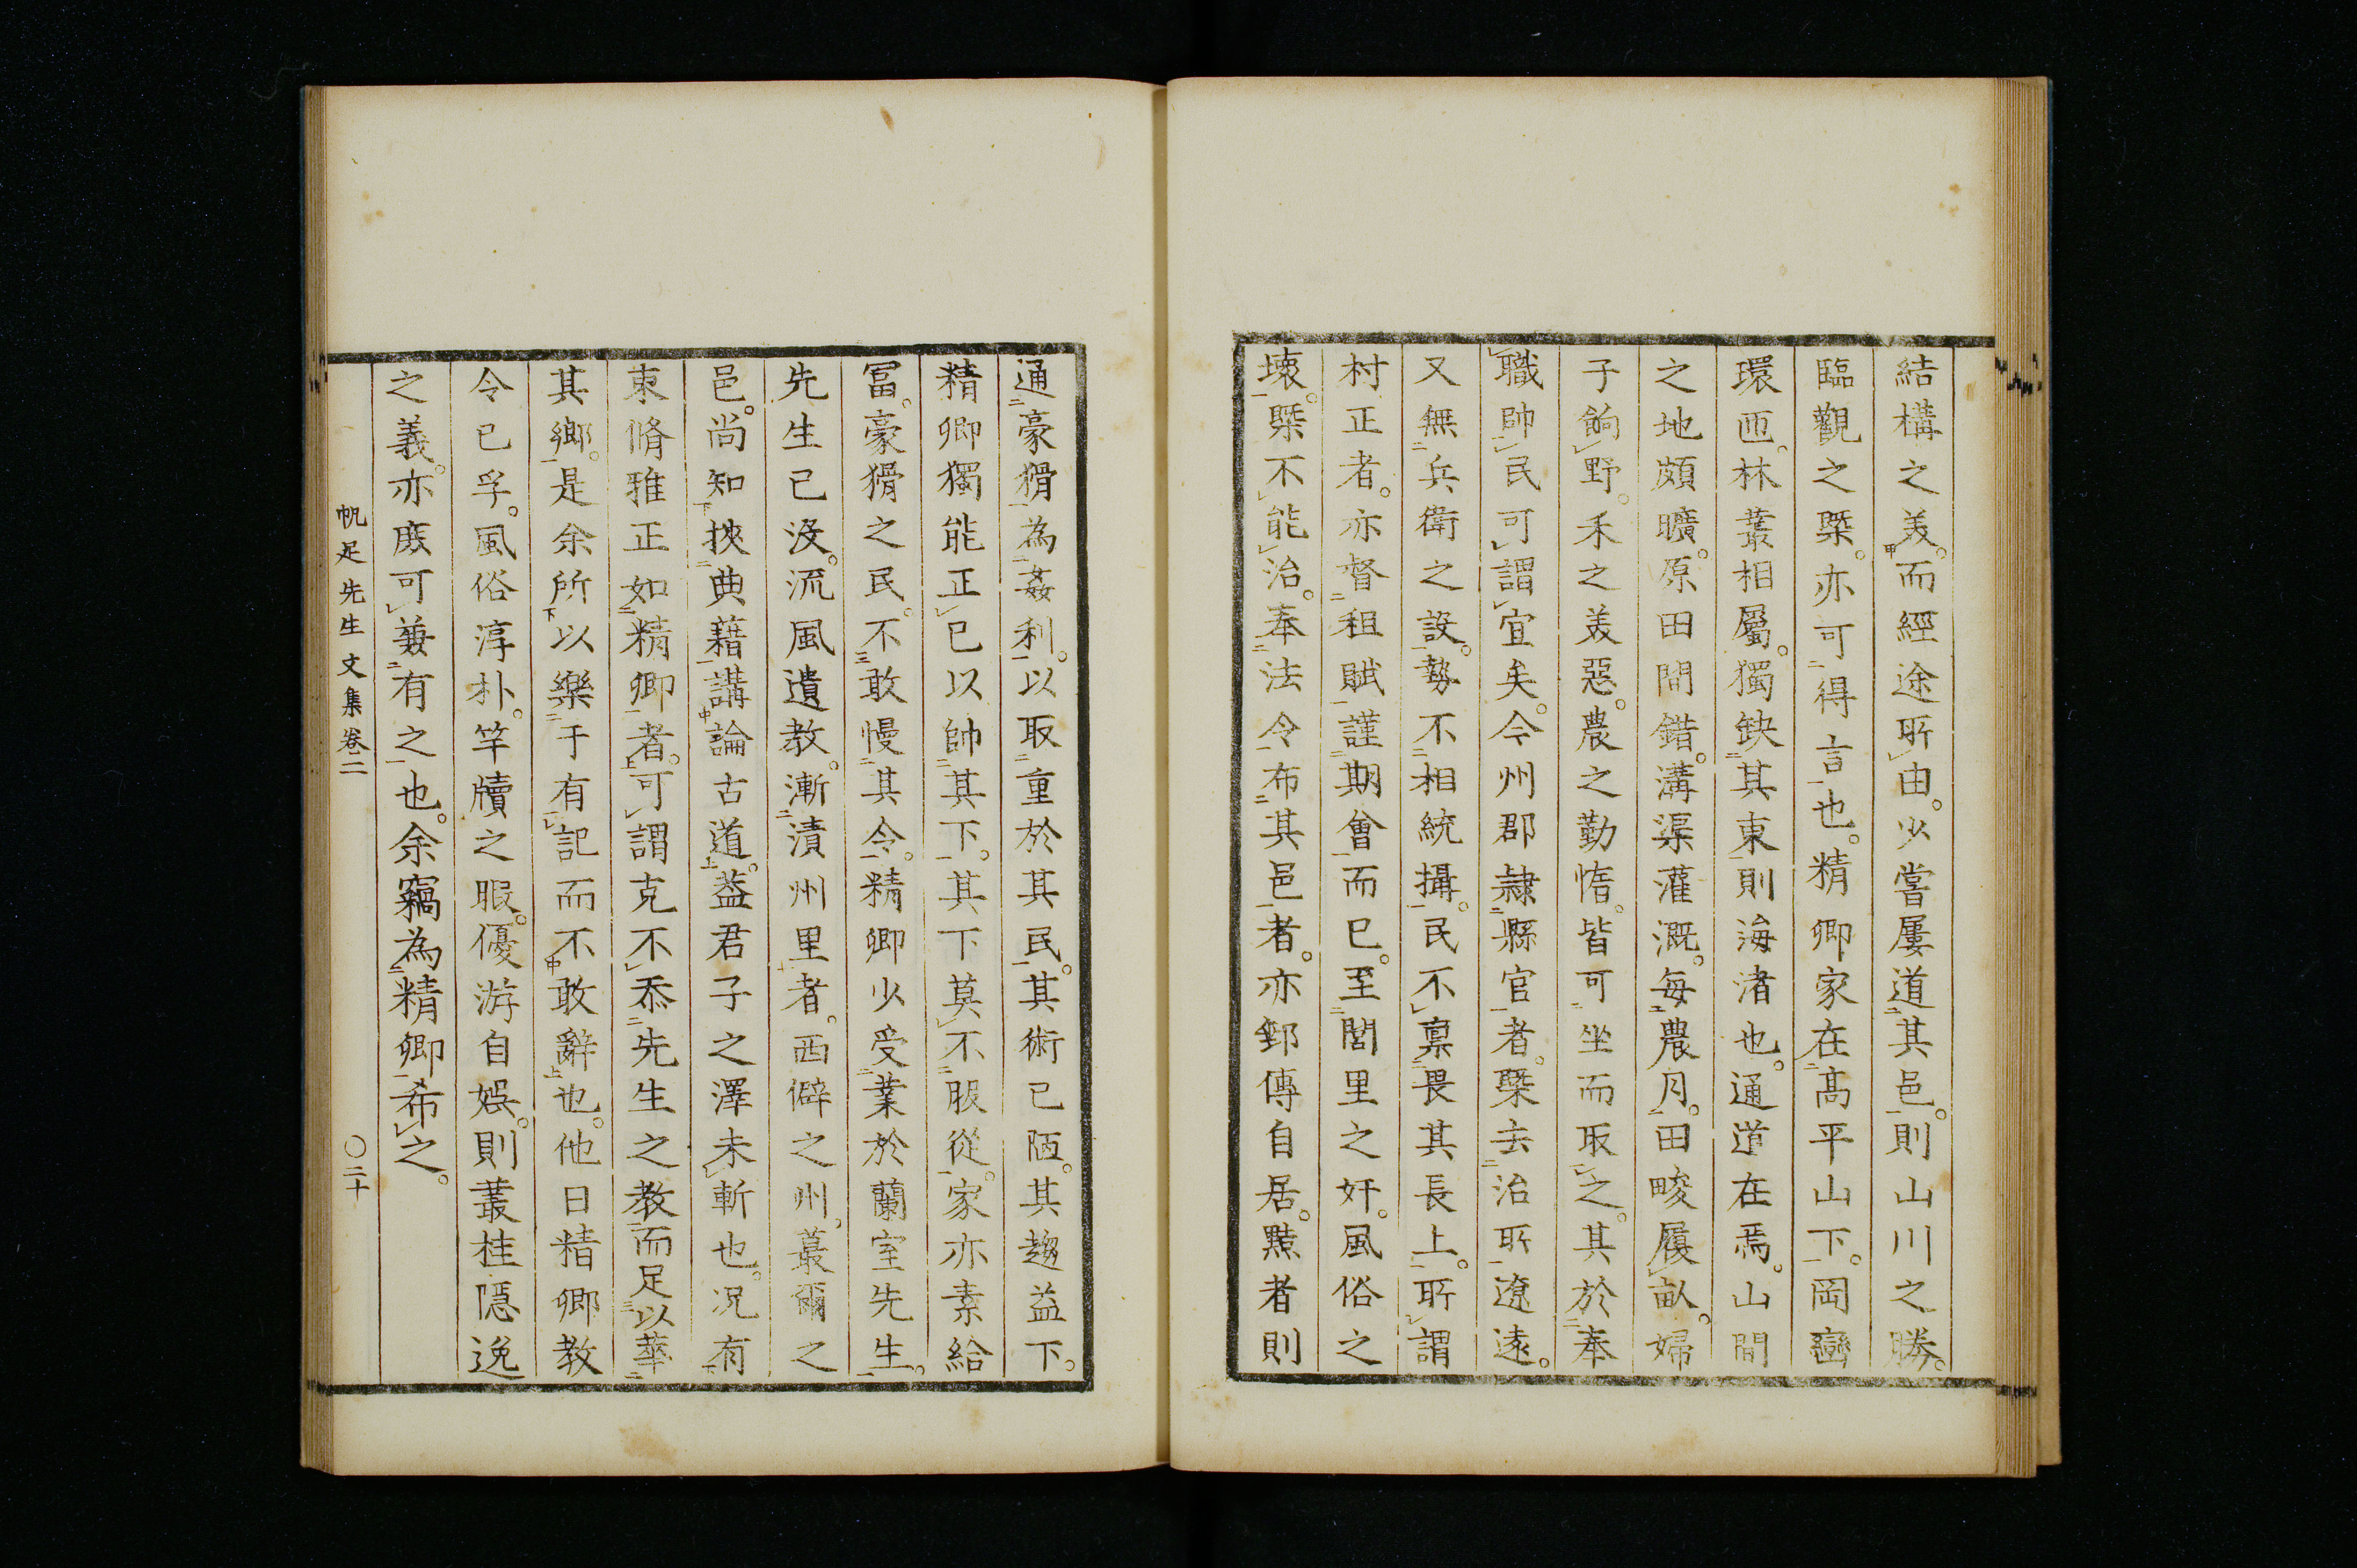 結構之美。而經途所由。少嘗屢道其邑。則山川之勝。
臨觀之槩。亦可得言也。精卿家在高平山下。岡巒
環匝。林叢相屬。獨缺其東。則海渚也。通道在焉。山間
之地頗曠。原田間錯。溝渠灌漑。每農月。田畯履畝。婦
子餉野。禾之美惡。農之勤惰。皆可坐而取之。其於奉
職帥民可謂宜矣。今州郡隷縣官者。槩去治所遼遠。
又無兵衛之設。勢不相統攝。民不稟畏其長上。所謂
村正者。亦督租賦謹期會而已。至閭里之奸。風俗之
壊。槩不能治。奉法令布其邑者。亦郵傳自居。黠者則
通豪猾為姦利。以取重於其民。其術已陋。其趨益下。
精卿獨能正已以帥其下。其下莫不服從。家亦素給
冨。豪猾之民。不敢慢其令。精卿少受業於蘭室先生。
先生已沒。流風遺教。漸漬州里者。西僻之州。蕞爾之
邑。尚知挾典藉講論古道。葢君子之澤未斬也。况有
束脩雅正如精卿者。可謂克不忝先生之教而足以華
其鄉。是余所以樂于有記而不敢辭也。他日精卿教
令已孚。風俗淳朴。竿牘之暇。優游自娯。則叢桂隱逸
之義。亦庶可兼有之也。余竊為精卿希之。
帆足先生文集卷二
〇二十